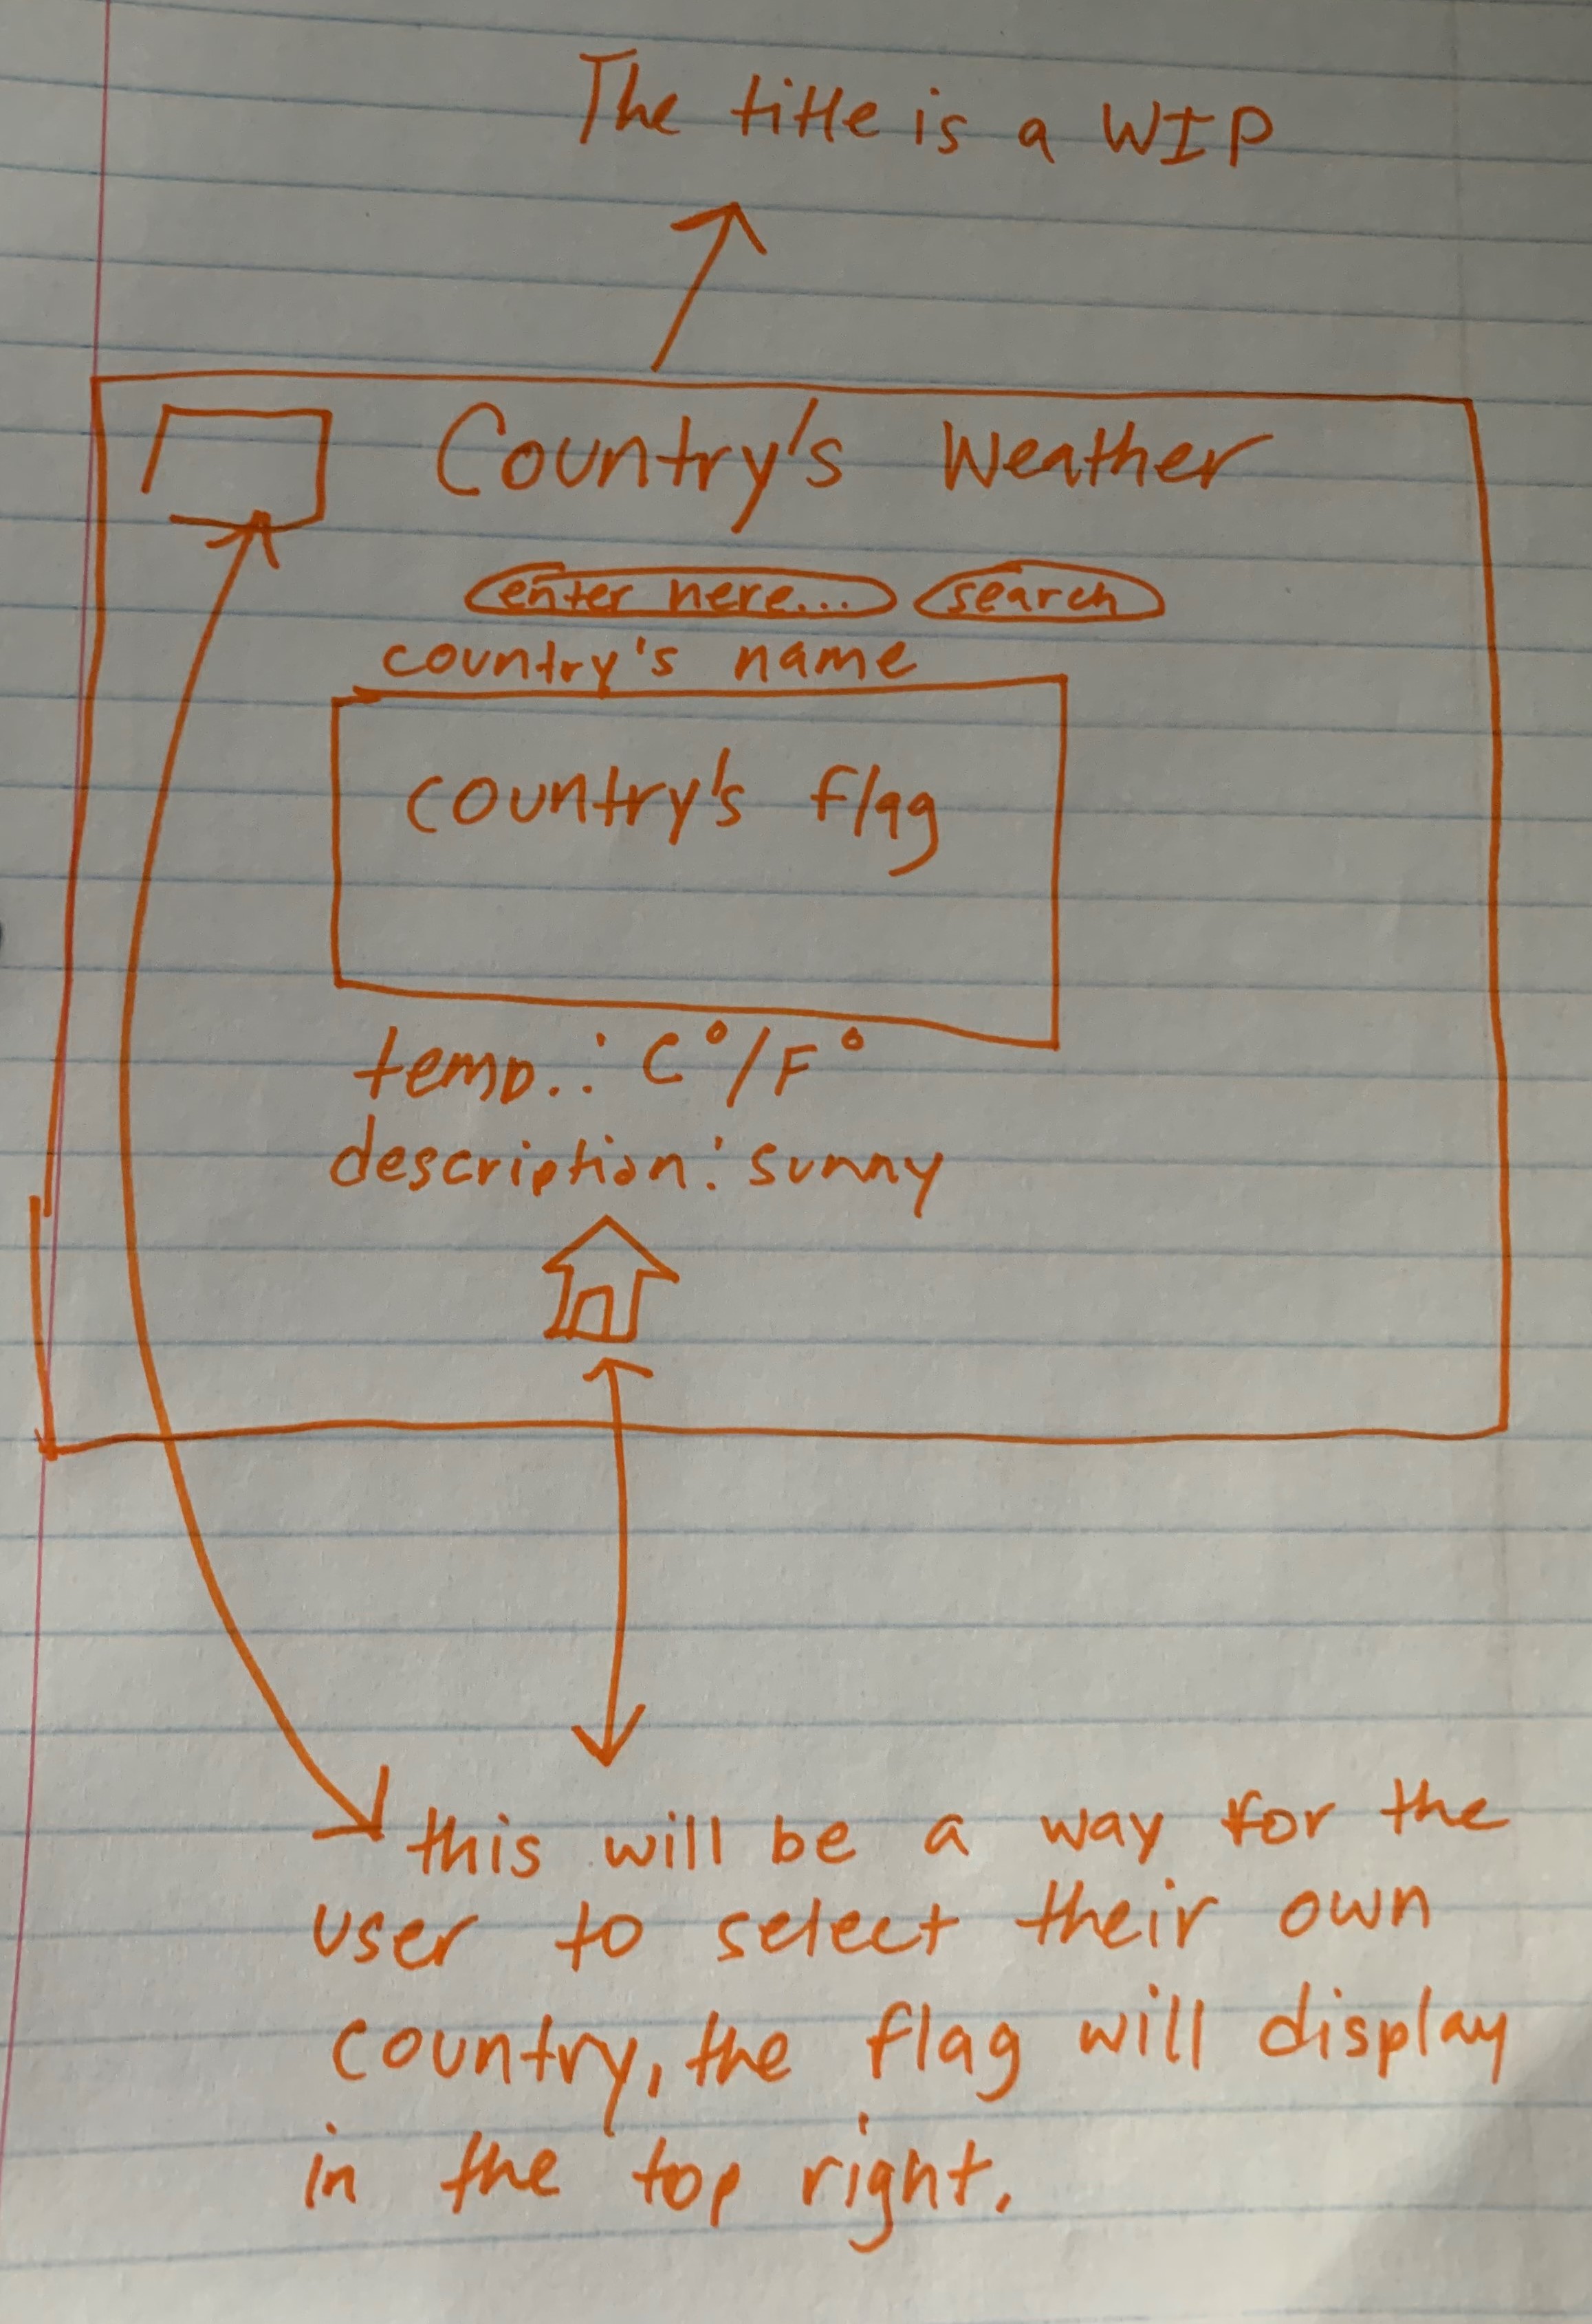 The title is a WIP
Country's Weather
enter here... search
country's name
country's flag
temp.: C°/F°
description: sunny
this will be a way for the
user to select their own
country, the flag will display
in the top right.